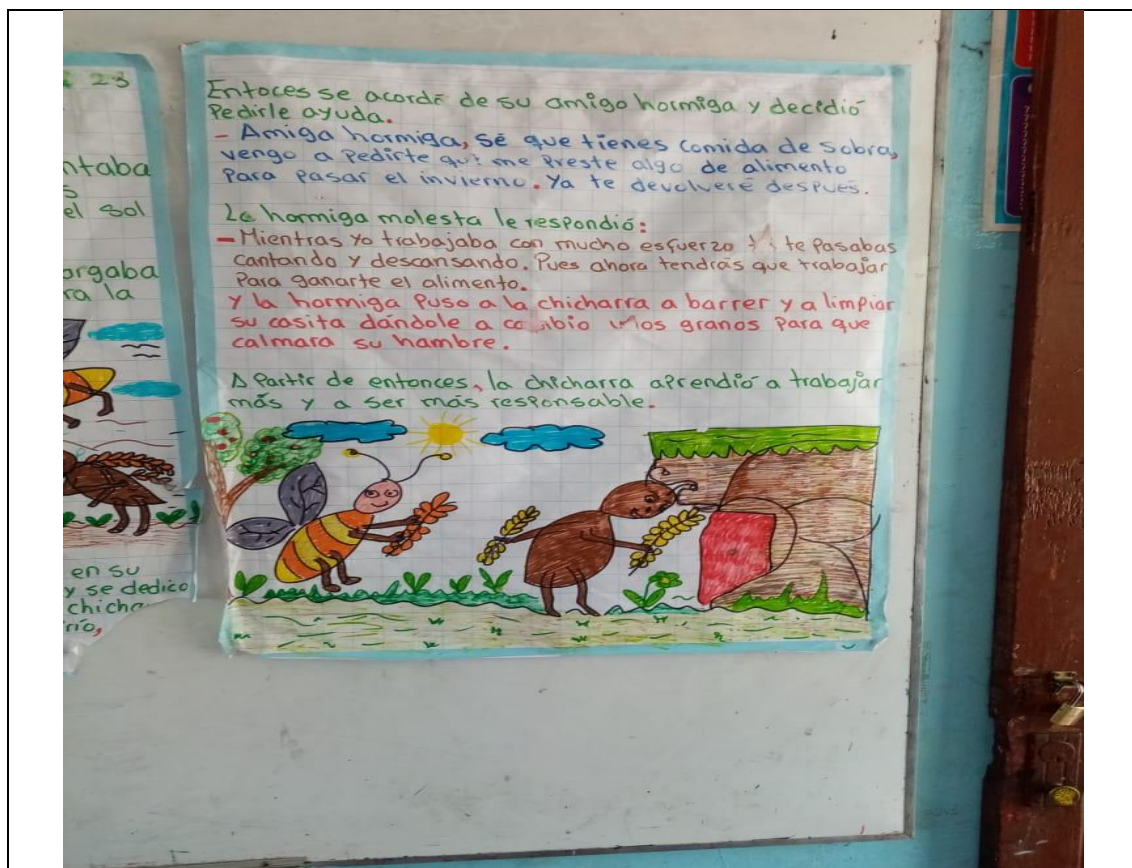 23
ntaba
s
el sol
argaba
ra la
en su
y se dedico
chicha
rio,
Entoces se acordó de su amigo hormiga y decidió
Pedirle ayuda.
- Amiga hormiga, sé que tienes comida de sobra,
vengo a Pedirte que me Preste algo de alimento
Para Pasar el invierno. Ya te devolveré después.
La hormiga molesta le respondió:
- Mientras yo trabajaba con mucho esfuerzo te Pasabas
cantando y descansando. Pues ahora tendrás que trabajar
Para ganarte el alimento.
y la hormiga Puso a la chicharra a barrer y a limpiar
su casita dándole a cambio unos granos Para que
calmara su hambre.
A Partir de entonces, la chicharra aprendió a trabajar
más y a ser más responsable.